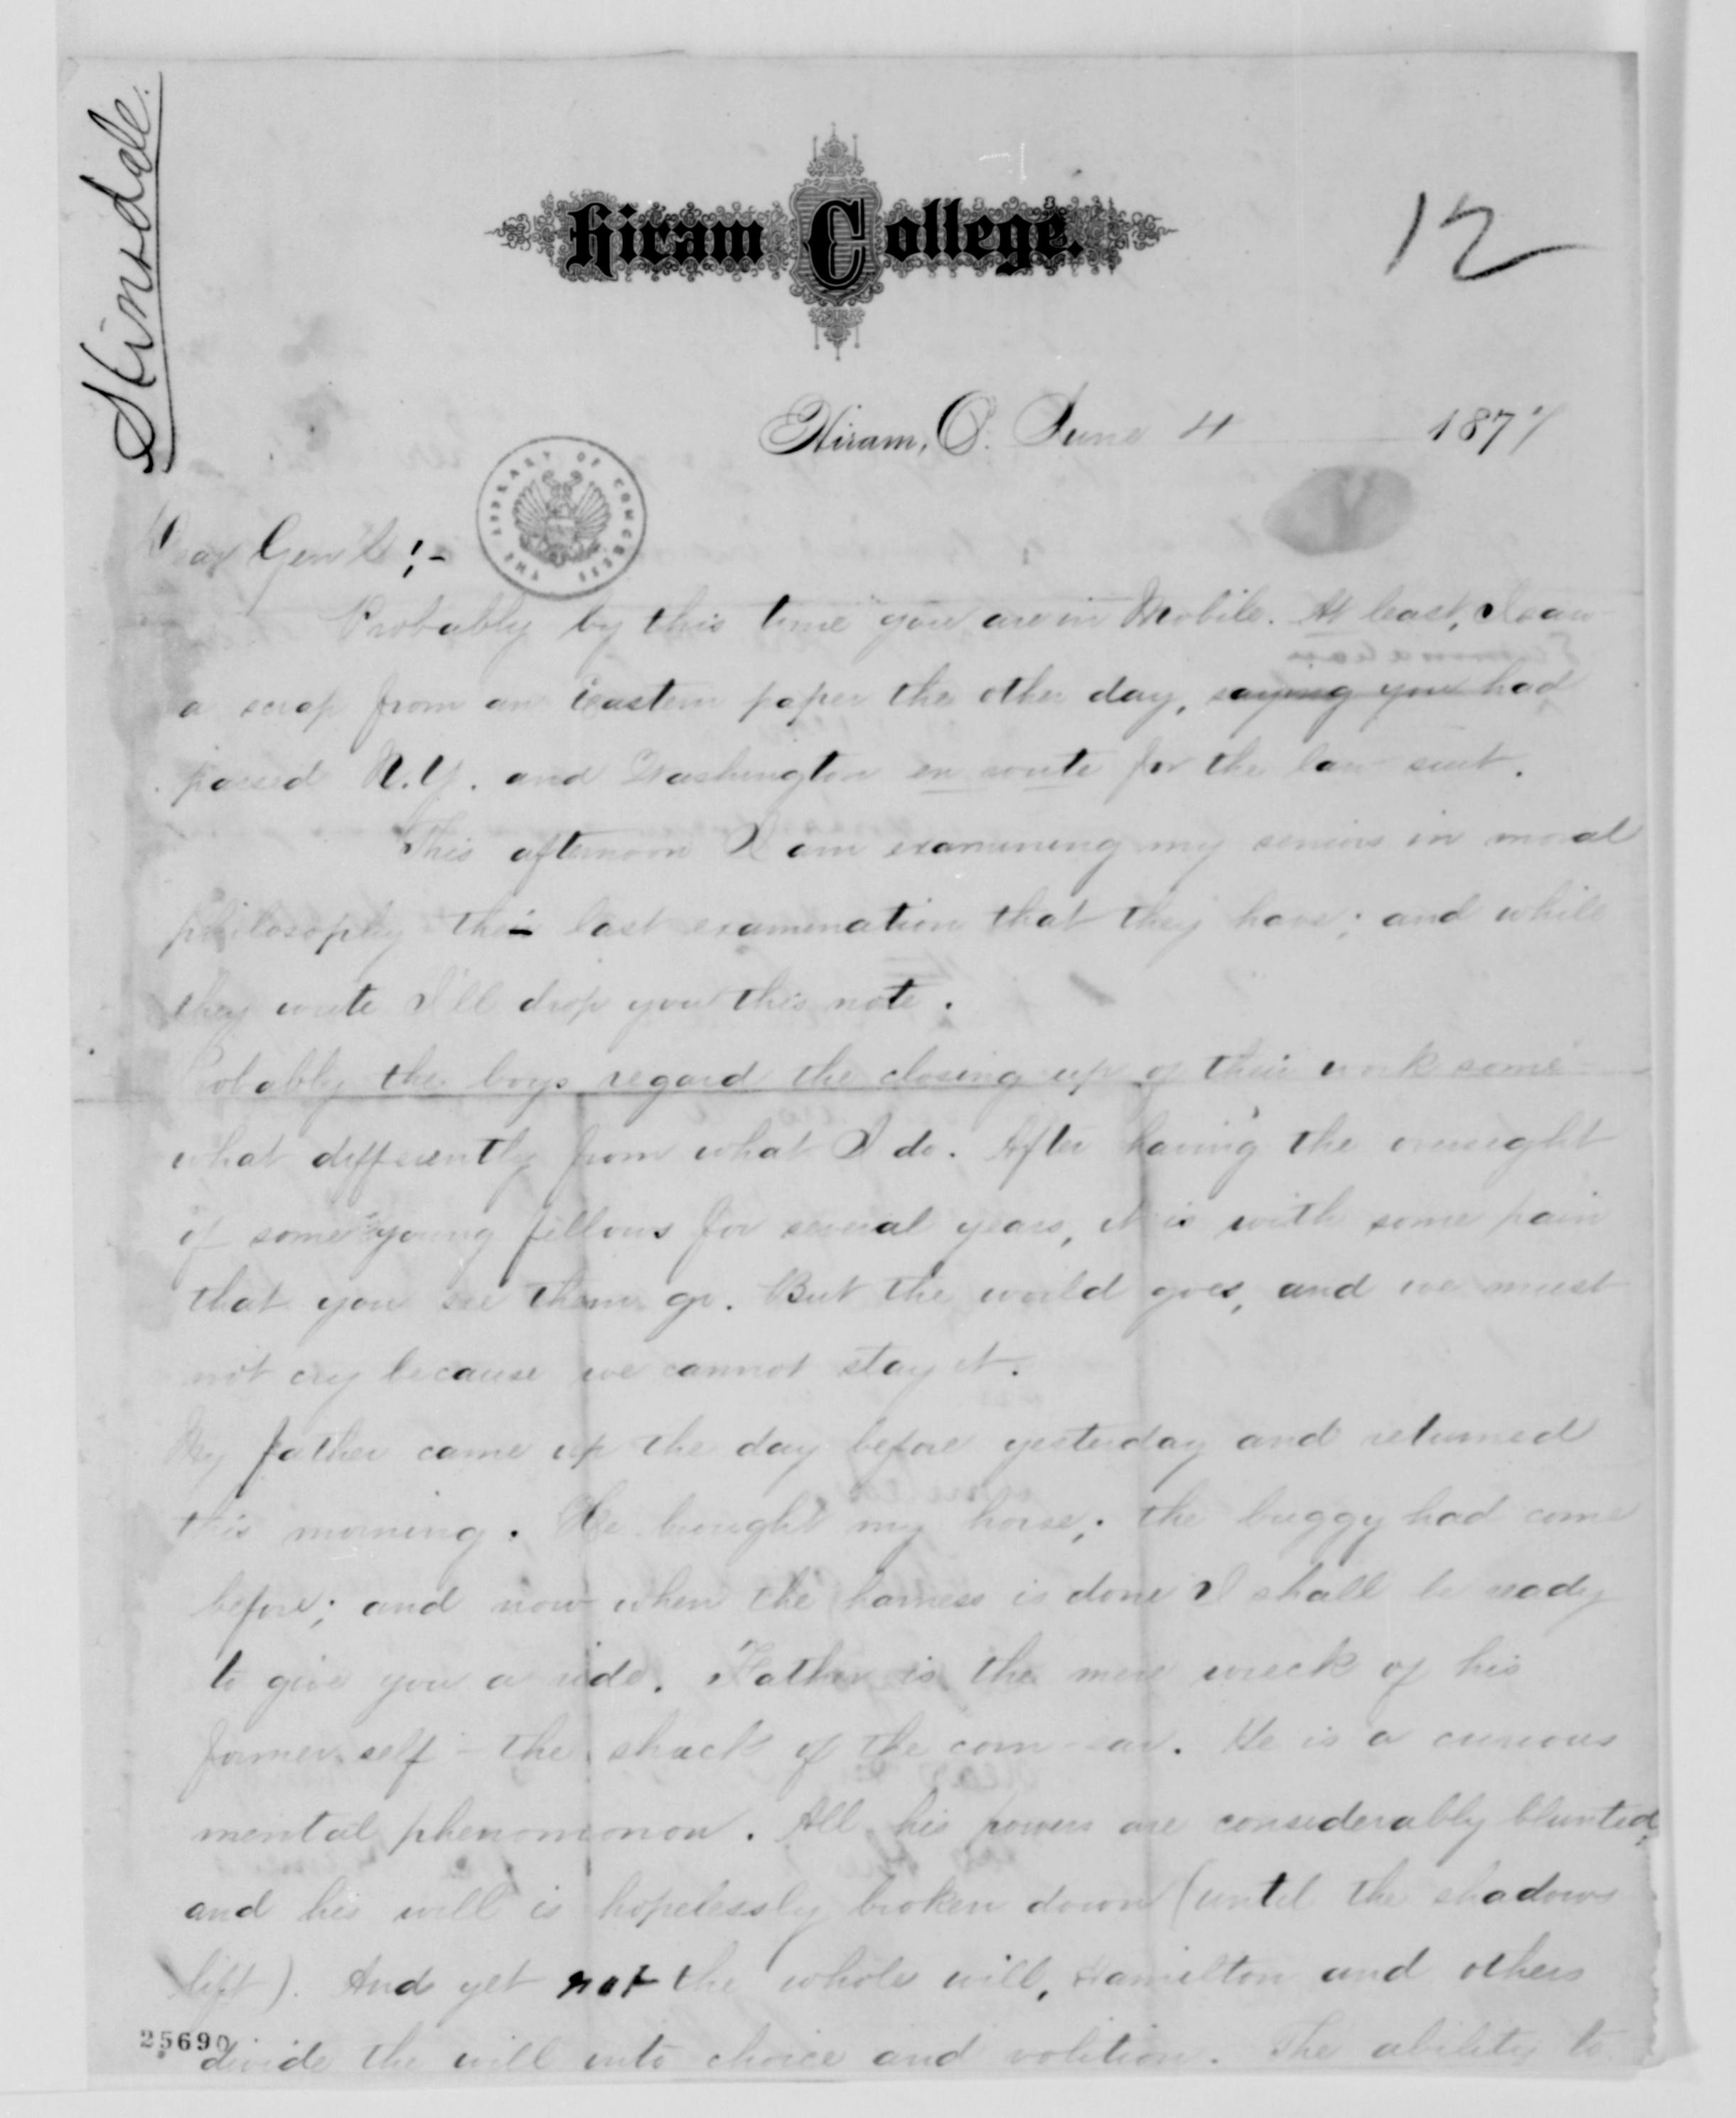 Hinsdale.
12
Hiram College.
Hiram, O. June 4 1877
THE LIBRARY OF CONGRESS
Dear Gen'l:-
Probably by this time you are in Mobile. At least, I saw
a scrap from an Eastern paper the other day, saying you had
passed N.Y. and Washington en route for the law suit.
This afternoon I am examining my seniors in moral
philosophy the last examination that they have; and while
they write I'll drop you this note.
Probably the boys regard the closing up of their work some-
what differently from what I do. After having the oversight
of some young fellows for several years, it is with some pain
that you see them go. But the world goes, and we must
not cry because we cannot stay it.
My father came up the day before yesterday and returned
this morning. He brought my horse; the buggy had come
before; and now when the harness is done I shall be ready
to give you a ride. Father is the mere wreck of his
former self - the shuck of the corn-ear. He is a curious
mental phenomonon. All his powers are considerably blunted,
and his will is hopelessly broken down (until the shadows
lift). And yet not the whole will, Hamilton and others
divide the will into choice and volition. The ability to
25690